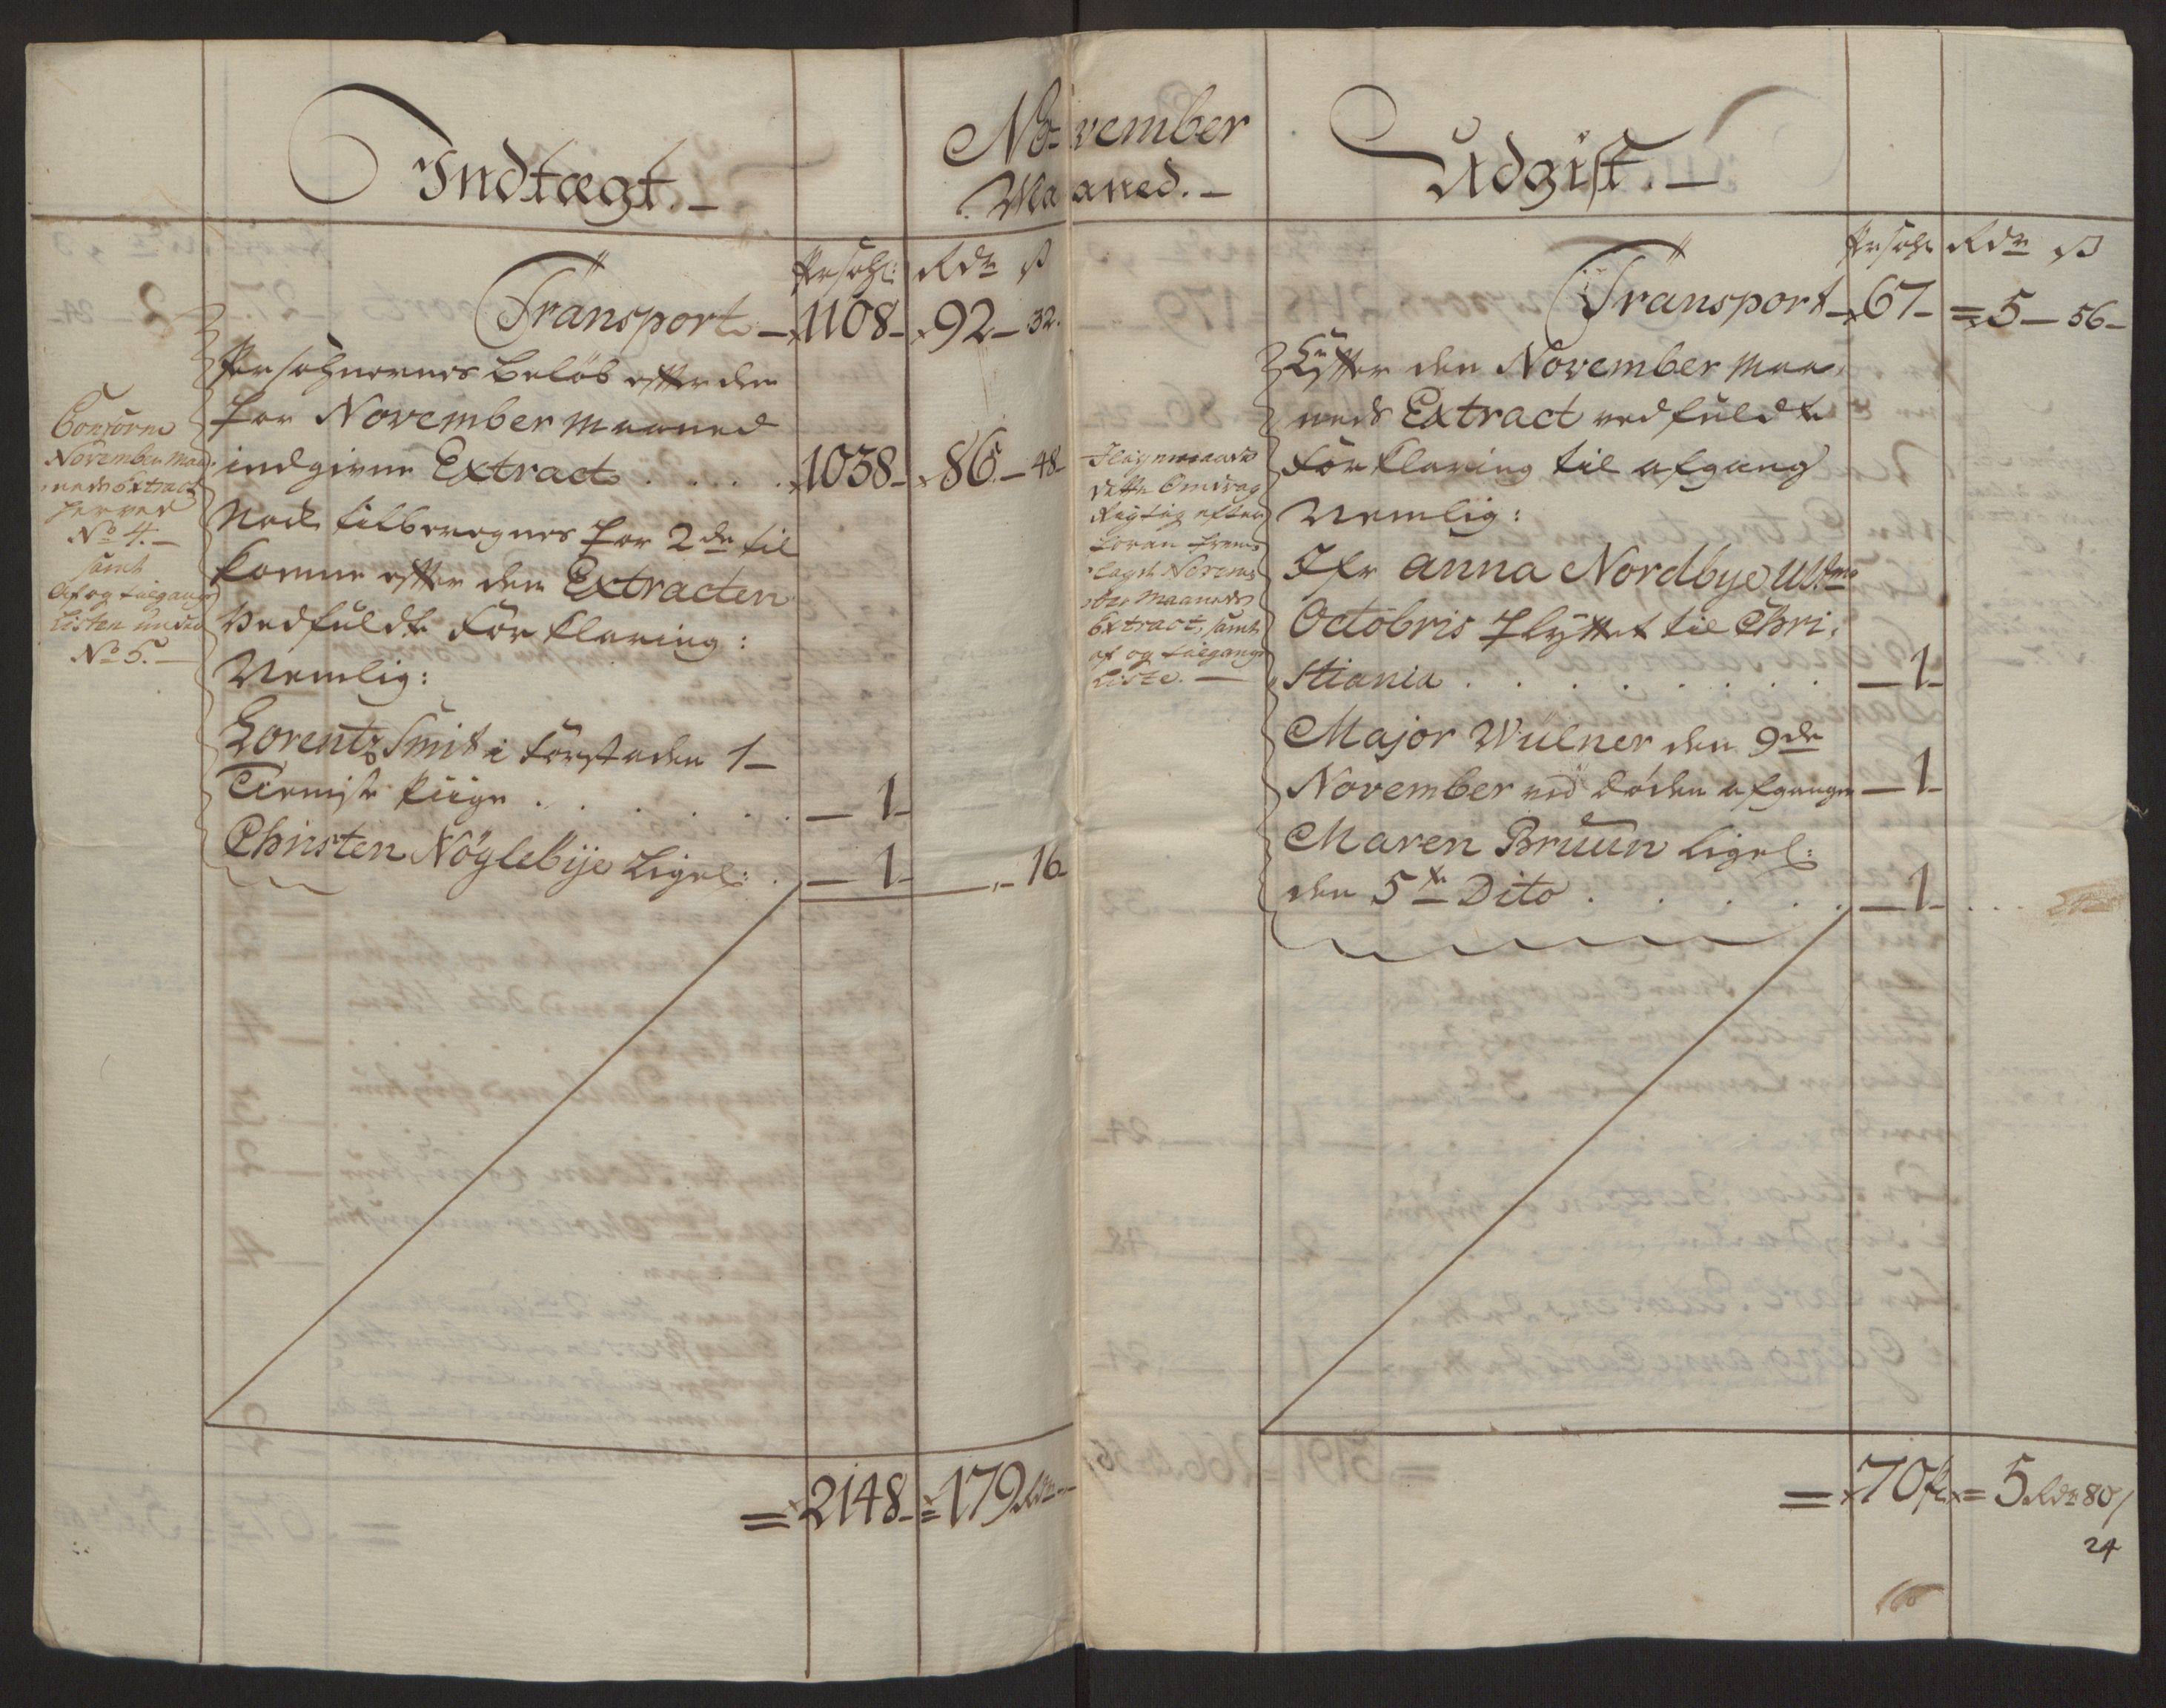 November
Maaned.-
Indtægt.-
Persohn: Rdr ß
Transport - 1108 - 92 - 32.
Persohnernes beløb efter den
for November Maaned
indgivne Extract . . . . 1038 - 86 - 48 -
Nock tilberegnes for 2de til
komne efter den Extracten
Vedfuldte Forklaring:
Nemlig:
Lorentz Smit i Forstaden 1 -
Tieniste Piige . . . . . . - 1 -
Christen Nøglebÿe Ligel: . - 1 - - „ - 16
= 2148 - = 179 Rdr -
November Maa-
neds Extract
herved
No 4. -
samt
Af og tilgangs
Listen under
No 5. -
Udgift. -
Persohn Rdr ß
Transport - 67 - = 5 - 56 -
Efter den November Maa-
neds Extract vedfuldte
Forklaring til afgang
Nemlig:
Jfr Anna Nordbye Ultmo
Octobris flyttet til Chri-
stiania . . . . . . . . - 1 -
Major Wulner den 9de
November ved døden afgangen - 1 -
Maren Bruun Ligel:
den 5te Dito . . . . . - 1 - . . .
= 70 = 5 Rdr 80 ß
24
dette Omdrag
Rigtig efter
foran frem-
lagde Novem-
ber Maaneds
Extract, samt
af og tilgangs
Liste. -